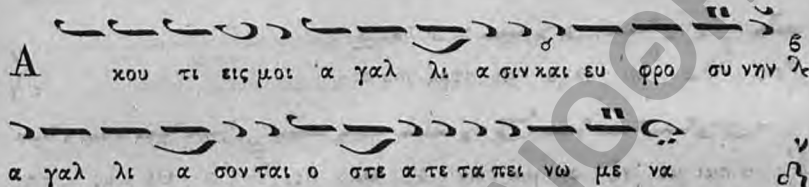 Α κου τι εις μοι α γαλ λι α σιν και ευ φρο συ νην
α γαλ λι α σον ται ο στε α τε τα πει νω με να